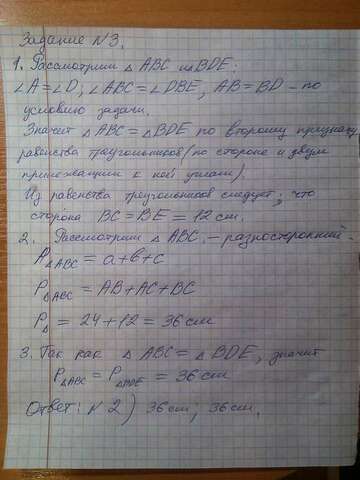 Задание №3.
1. Рассмотрим △ ABC и △ BDE.
∠A=∠D, ∠ABC=∠DBE, AB=BD – по
условию задачи.
Значит △ABC=△BDE по второму признаку
равенства треугольников (по стороне и двум
прилежащим к ней углам).
Из равенства треугольников следует, что
сторона BC=BE=12 см.
2. Рассмотрим △ ABC. – разносторонний.
P△ABC = a+b+c
P△ABC = AB+AC+BC
P△ = 24+12=36 см
3. Так как △ ABC=△BDE, значит
P△ABC = P△BDE = 36 см
Ответ: №2) 36 см; 36 см.